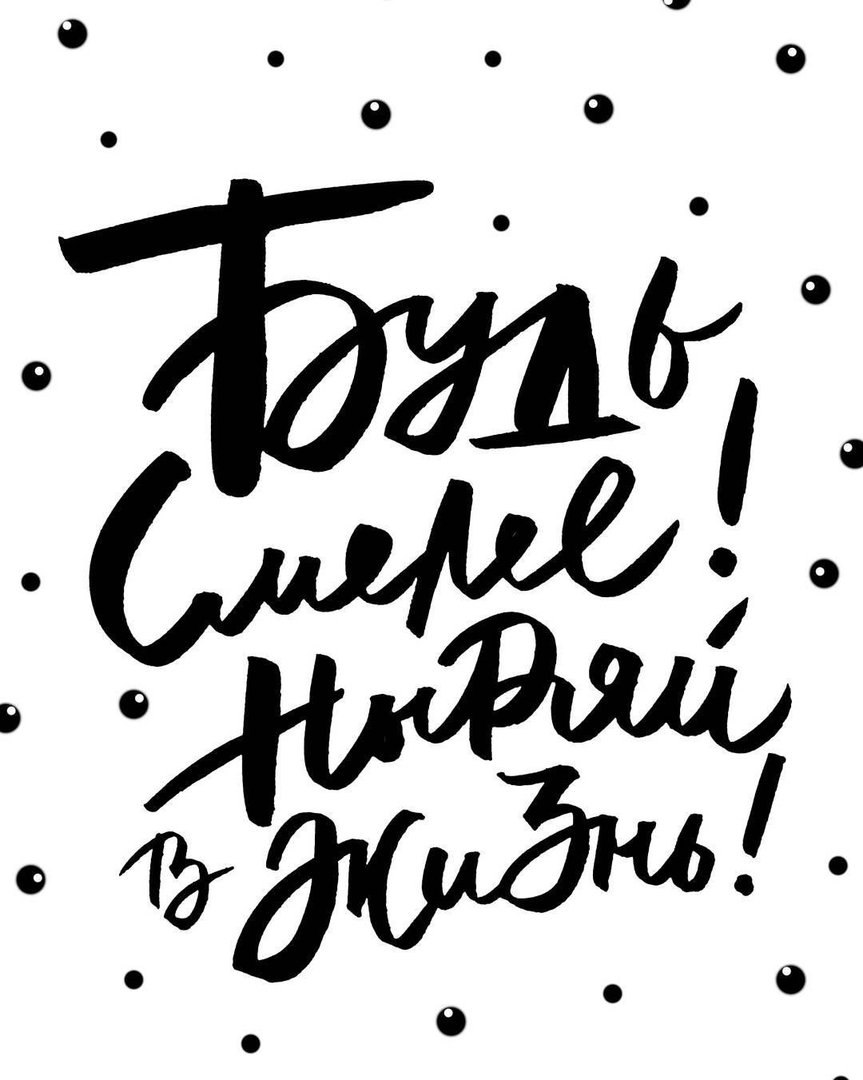 Будь
Смелее!
Ныряй
в жизнь!